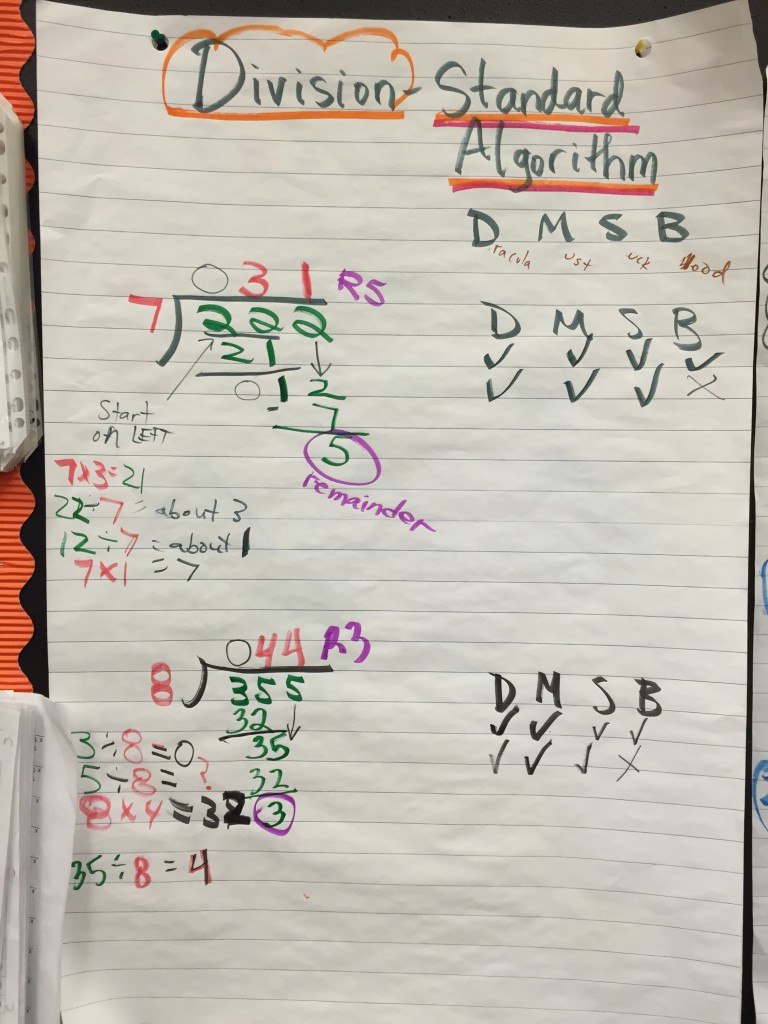 Division - Standard
Algorithm
D M S B
racula ust uck lood
0 3 1 R5
7 222
21
012
- 7
5
remainder
Start
on LEFT
7x3=21
22÷7 = about 3
12÷7 = about 1
7x1 = 7
D M S B
✓ ✓ ✓ ✓
✓ ✓ ✓ X
044 R3
8 355
32
35
32
3
3÷8=0
5÷8=?
8x4=32
35÷8=4
D M S B
✓ ✓ ✓ ✓
✓ ✓ ✓ X